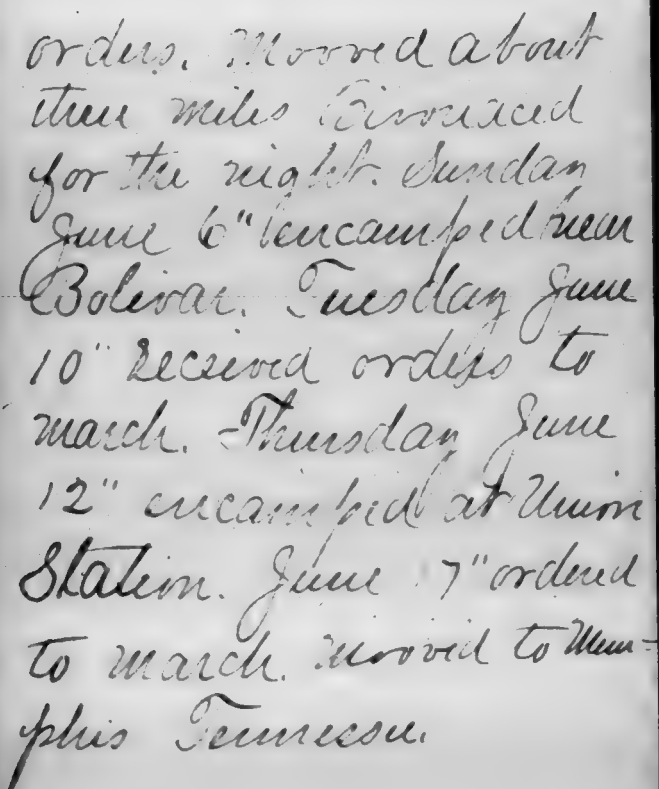 orders. Mooved about
three miles Bivouaced
for the night. Sunday
June 6" encamped near
Bolivar. Tuesday June
10" Received orders to
march. - Thursday June
12" encamped at Union
Station. June 17" ordered
to march. Mooved to Mem-
phis Tennessee.